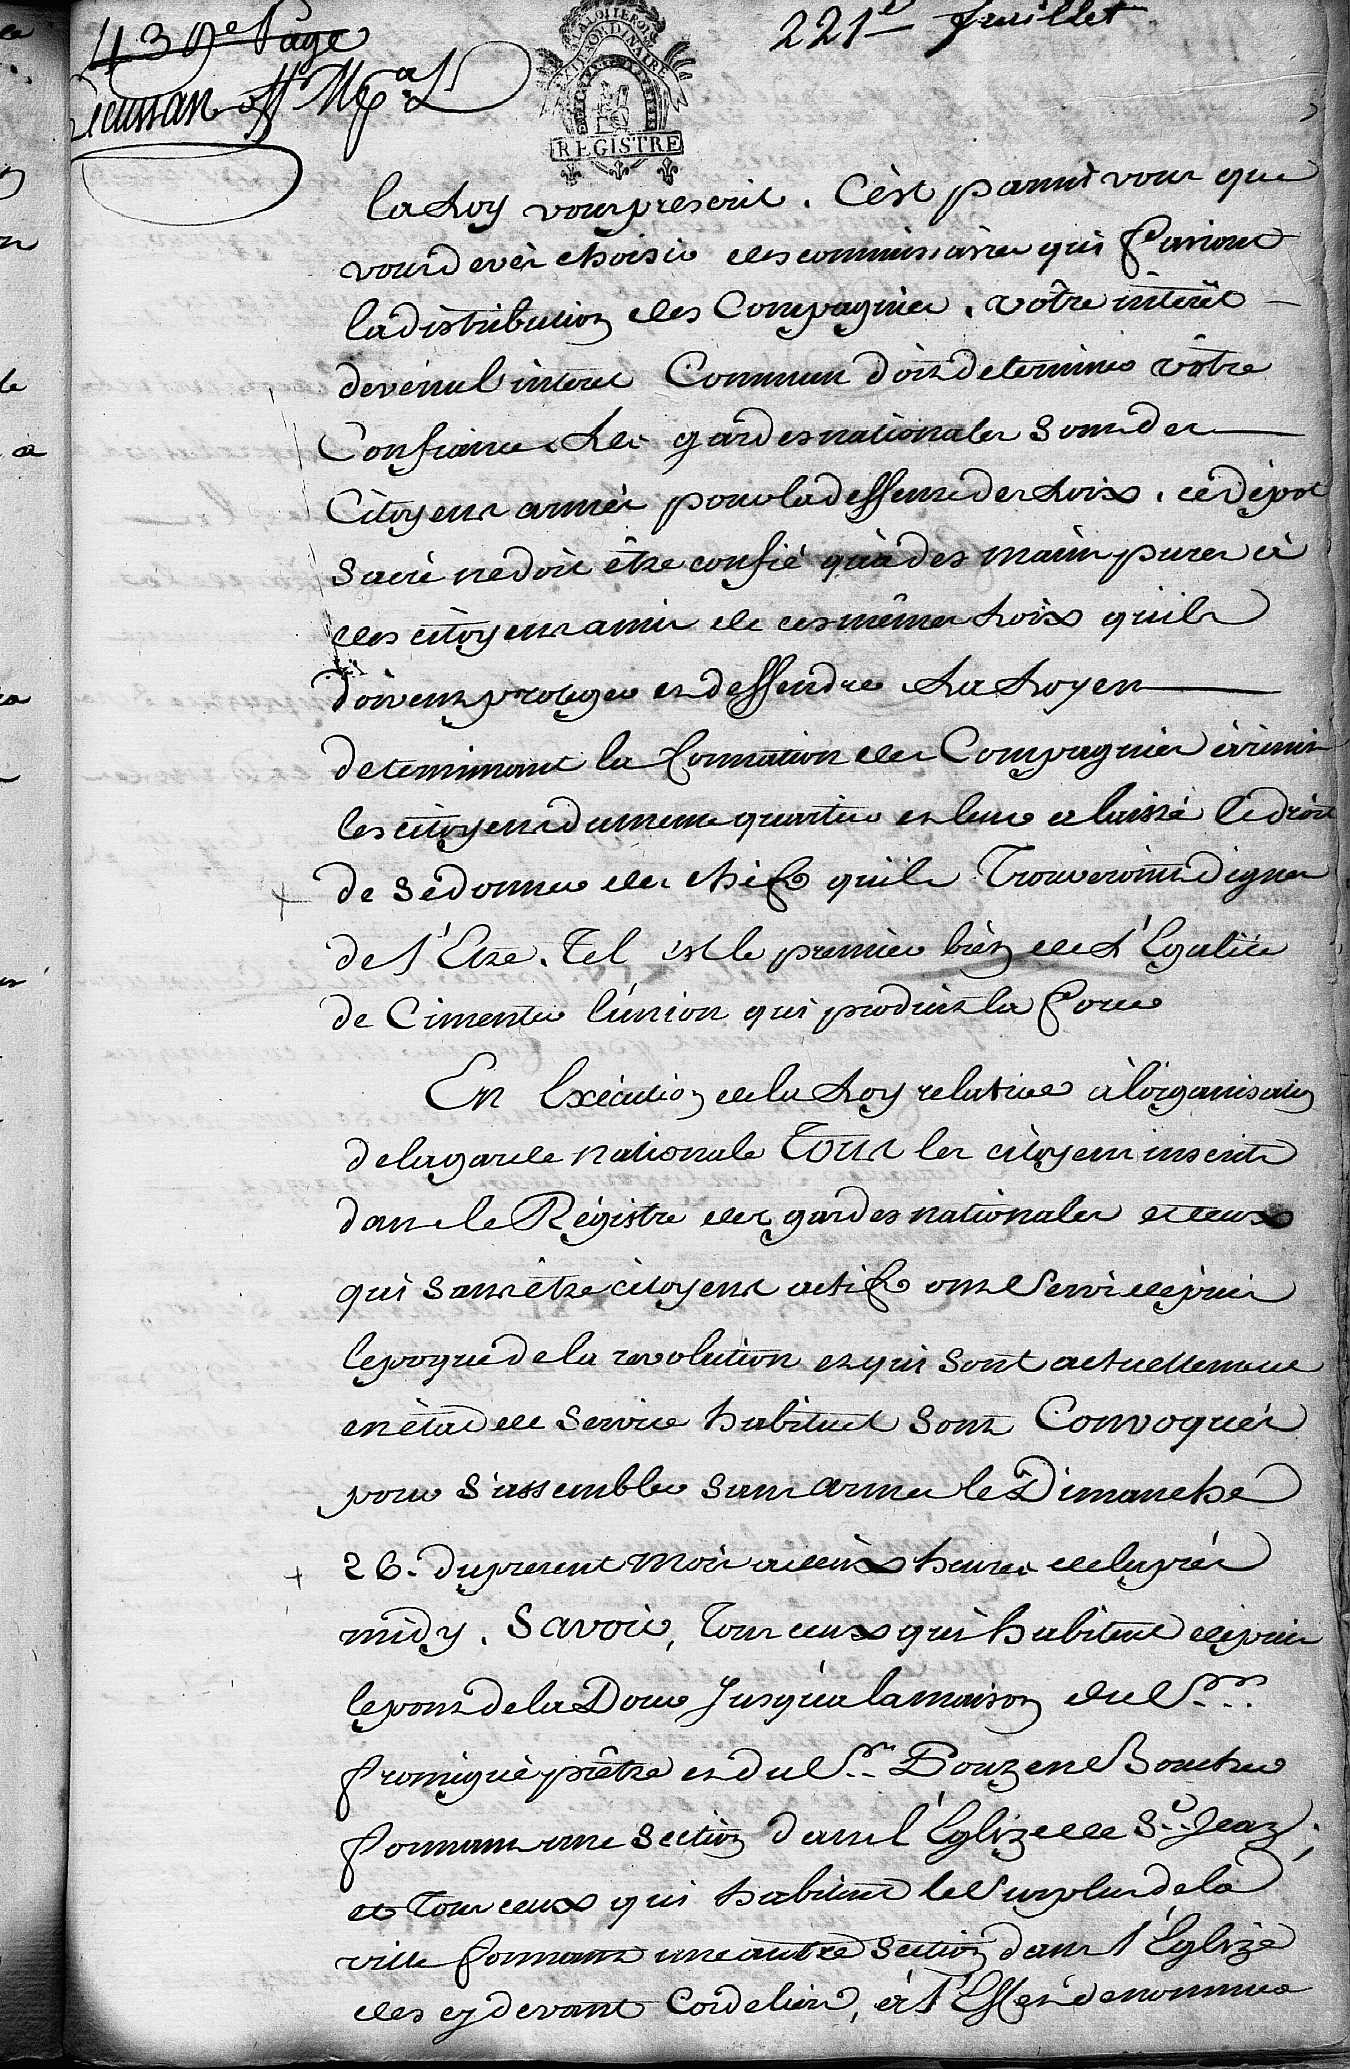 439e Page
221e feuillet
Lecussan off Mpal
EXTRAORDINAIRE
REGISTRE
la Loy vous prescrit. C'est parmi vous que
vous devés choisir des commissaires qui feront
la distribution des Compagnies. vôtre intérêt
devenu l'interet Commun doit determiner vôtre
Confiance. Les gardes nationales sont des
Citoyens armés pour la deffense des Loix. ce dépot
sacré ne doit être confié qu'à des mains pures à
des citoyens amis de ces mêmes Loix qu'ils
doivent proteger et deffendre La Loy en
determinant la formation des Compagnies à réuni
les citoyens du meme quartier et leur a laissé le droit
de se donner des chefs qu'ils trouveront dignes
de l'Etre. Tel est le premier bien de L'Egalité
de Cimenter l'union qui produit la force
En Exécution de la Loy relative à l'organisation
de la garde nationale Tous les citoyens inscrits
dans le Régistre des gardes nationales et ceux
qui sans être citoyens actifs ont servi depuis
l'epoque de la revolution et qui sont actuellement
en état de service habituel sont Convoqués
pour s'assembler sans armes le Dimanche
26. du present mois a deux heures de l'aprés
midy. Savoir, Tous ceux qui habitent depuis
le pont de la Doue Jusqu'a la maison du Sr.
fromigué prêtre et du Sr. Douzene Boucher
formant une section dans l'Eglize de St. Jean;
et Tous ceux qui habitent le surplus de la
ville formant une autre section dans l'Eglize
des cy devant Cordeliers, à l'Effet de nommer